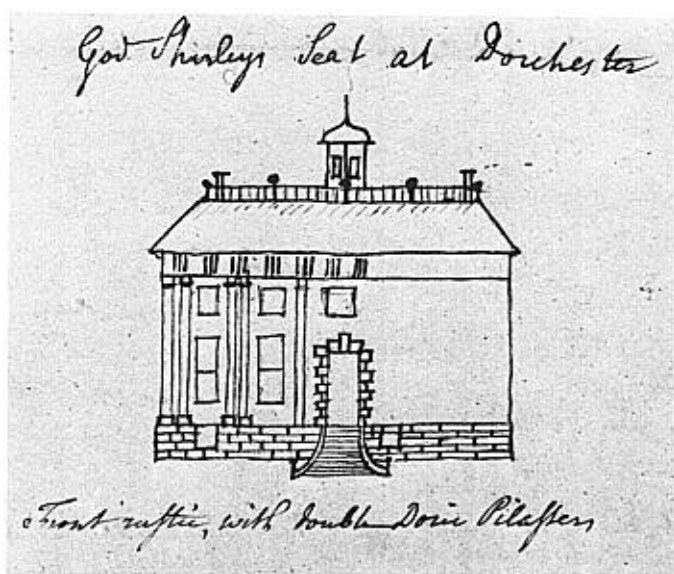 Gov Shirleys Seat at Dorchester
Front rustic, with double Doric Pilasters